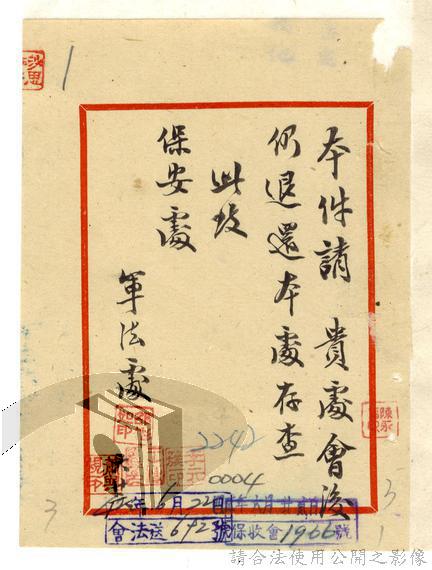 本件請 貴處會後
仍退還本處存查
此致
保安處
軍法處
2242
0004
1
3
3
會法送692號
保收會1966號
請合法使用公開之影像